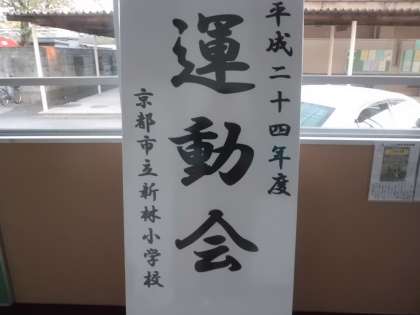 平成二十四年度
運動会
京都市立新林小学校